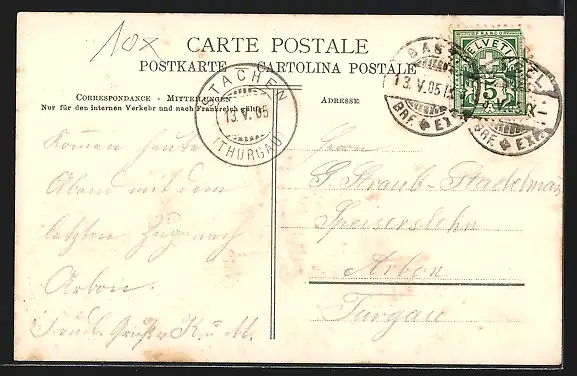 10x
CARTE POSTALE
POSTKARTE CARTOLINA POSTALE
CORRESPONDANCE - MITTEILUNGEN
Nur für den internen Verkehr und nach Frankreich gültig.
ADRESSE:
STACHEN
13.V.05
(THURGAU)
BASEL
13.V.05.IX
BRF EXP
HELVETIA
FRANCO
5
BASEL
BRF EXP
Kommen heute
Abend mit dem
letzten Zuge nach
Arbon.
Fredl. Gruß K. u. M.
Herrn
G. Straub-Stadelmann
Arbon
Turgau